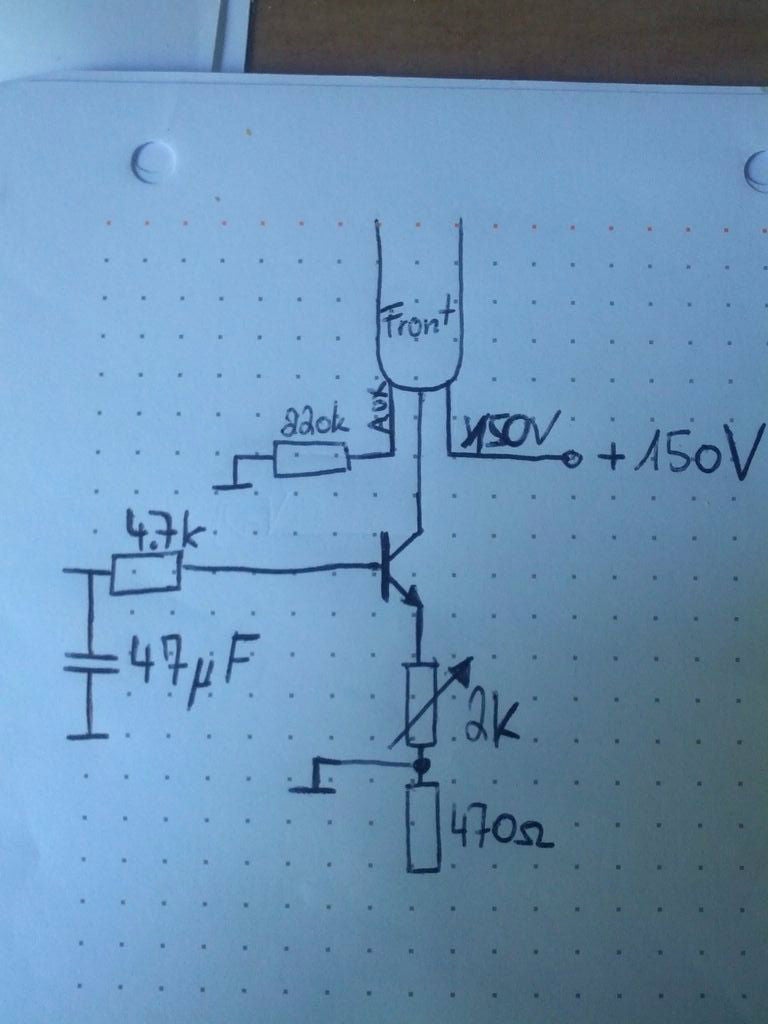 Front
Aux
220k
150V
+150V
4.7k
47µF
2k
470Ω